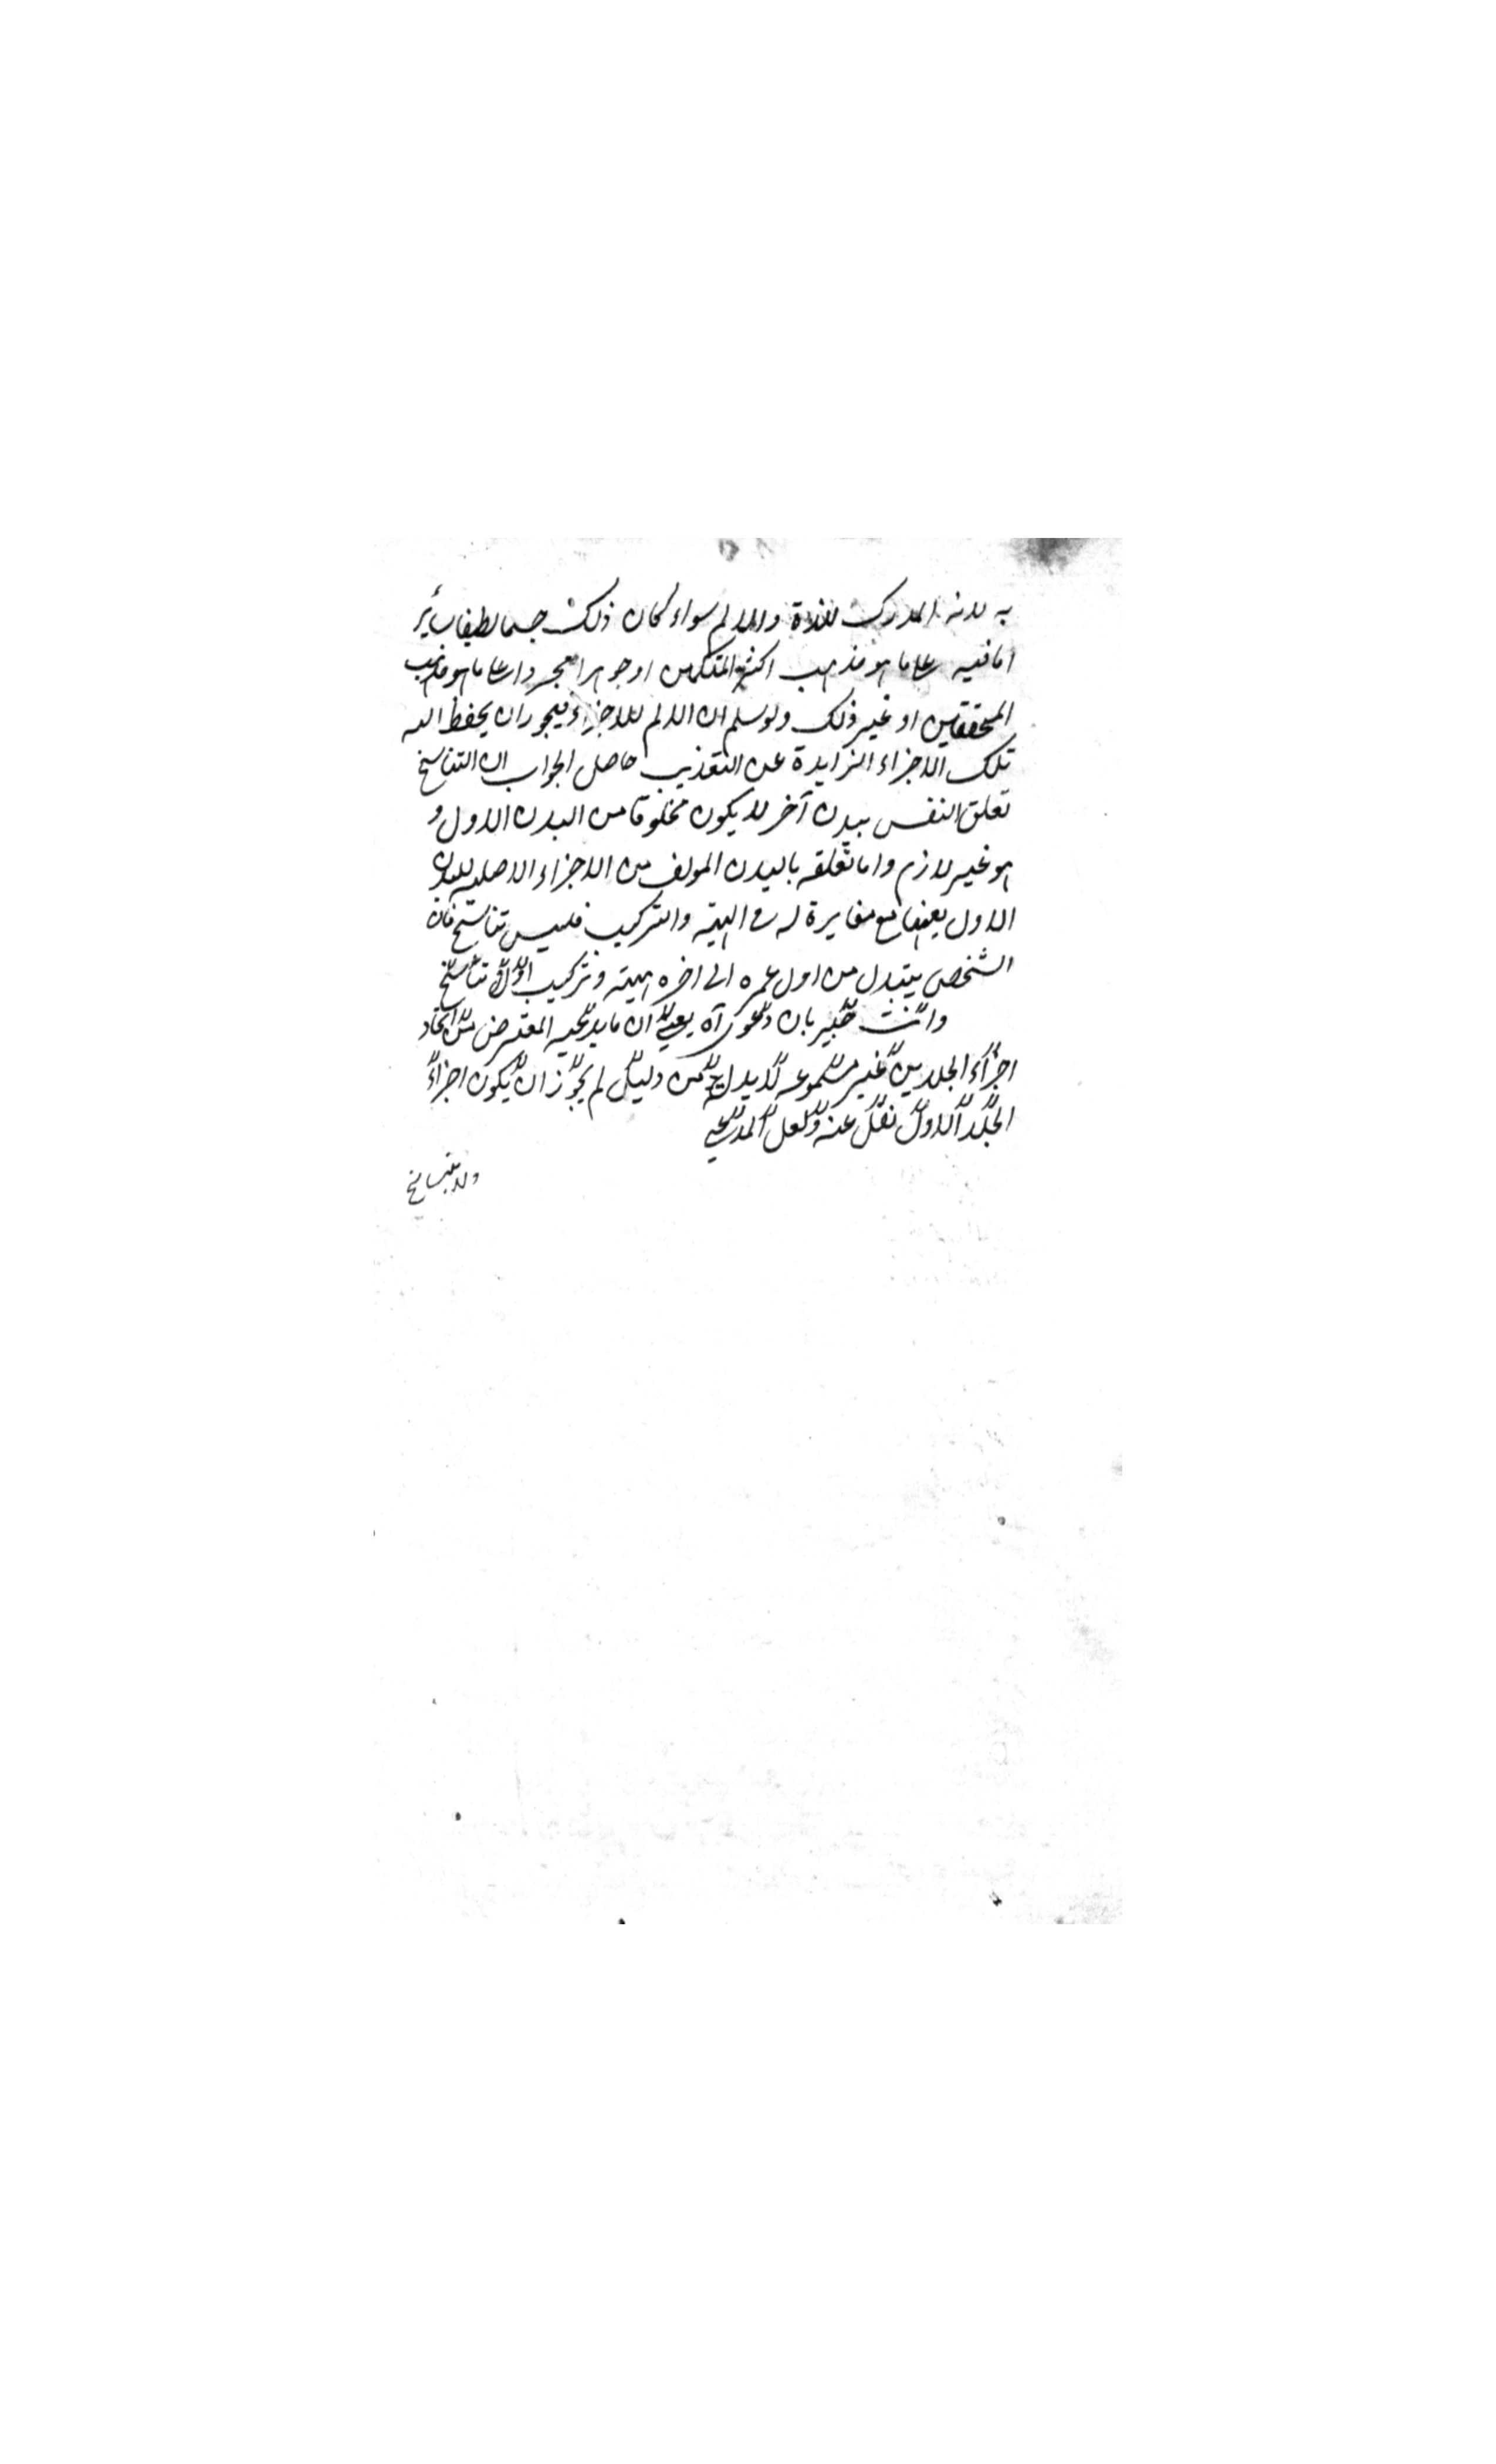 به لانه المدرك للذة والالم سواء كان ذلك جسما لطيفا سائر
امافيه على ما هو مذهب اكثر المتكلمين او جوهرا مجردا على ما هو مذهب
المحققين او غير ذلك ولو سلم ان الالم للاجزاء فيجوز ان يحفظ الله
تلك الاجزاء الزايدة عن التعذيب حاصل الجواب ان التناسخ
تعلق النفس ببدن آخر لا يكون مخلوقا من البدن الاول و
هو غير لازم واما تعلقه بالبدن المولف من الاجزاء الاصلية للبدن
الاول بعينها مع مغايرة له في الهيئة والتركيب فليس تناسخ فان
الشخص يتبدل من اول عمره الى اخره هيئة وتركيب اولا تناسخ
وانت خبير بان دعوى آه يعني ان ما يدعيه المعترض من اتحاد
اجزاء الجلدين غير مسموعة لا بد له من دليل لم يجوز ان يكون اجزاء
الجلد الاول نقل عنه ولعل المدعي
ولا تناسخ